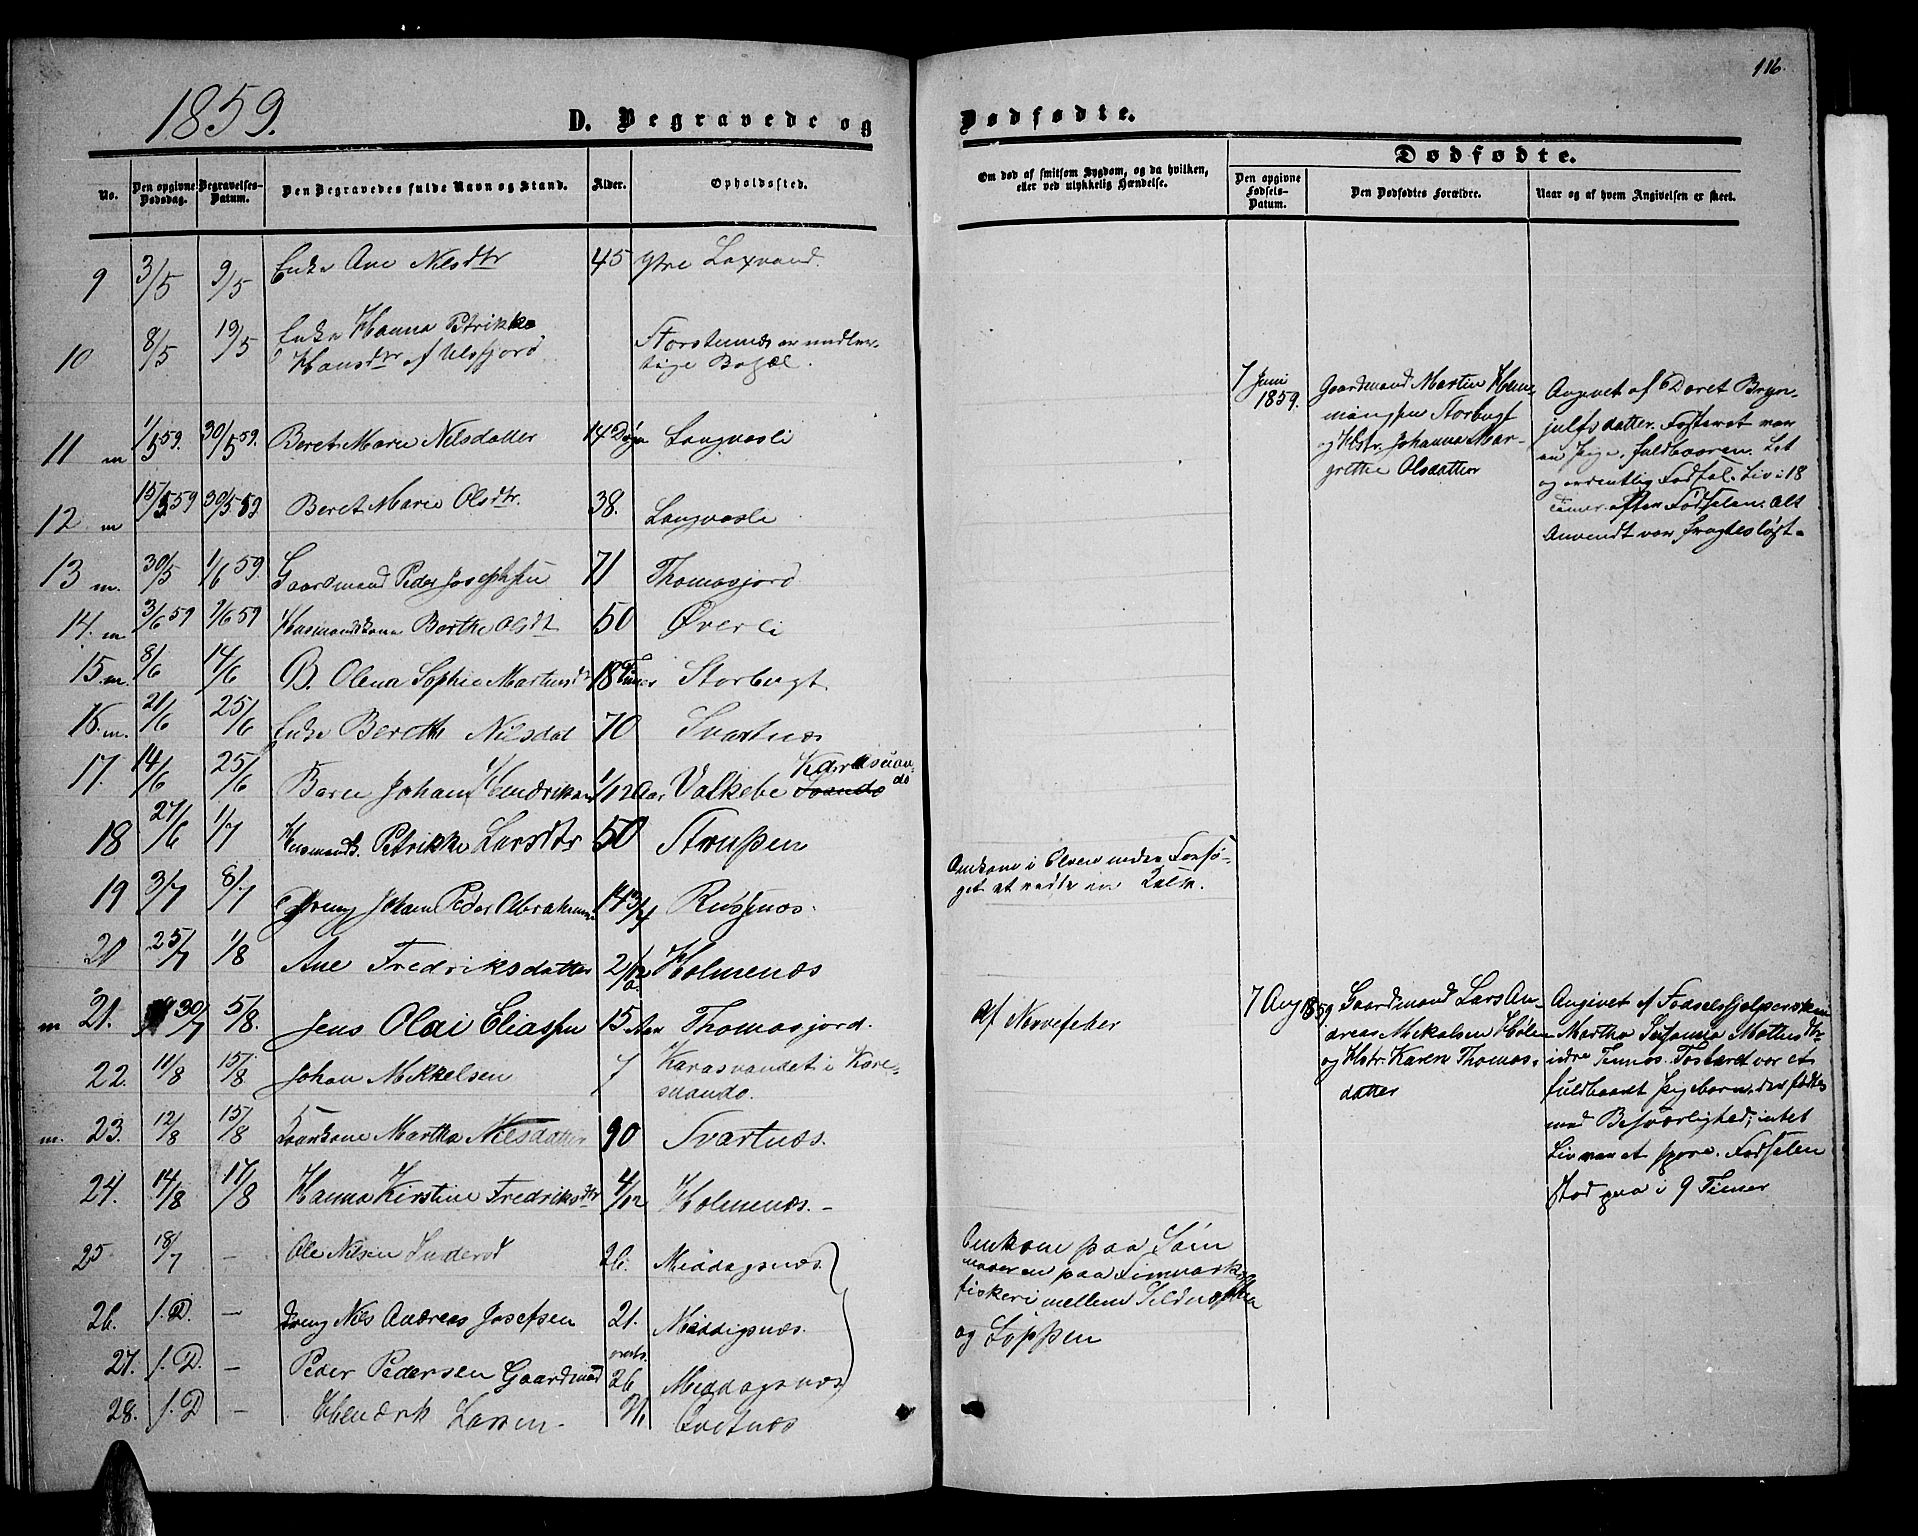 116.
1859.
D. Begravede og Dødfødte.
No.
Den opgivne Dødsdag.
Begravelses-Datum.
Den Begravedes fulde Navn og Stand.
Alder.
Opholdssted.
Om død af smitsom Sygdom, og da hvilken, eller ved ulykkelig Hændelse.
Dødfødte.
Den opgivne Fødsels-Datum.
Den Dødfødtes Forældre.
Naar og af hvem Angivelsen er skeet.
9 3/5 9/5 Enke Ane Nilsdtr 45 Ytre Laxvand.
10 8/5 19/5 Enke Hanna Petrikke
Hansdtr af Ulsfjord Storstennæs
11 m 1/5 59. 30/5 59. Beret Marie Nilsdatter 14 Døgn Langvasli
12 m 15/5 59 30/5 59 Beret Marie Olsdtr. 38. Langvasli
13 m. 30/5 1/6 59. Gaardmand Peder Josephsen 71 Thomasjord
14. m 3/6 59 59 Husmandskone Berthe Olsdt 50 Øverli
15. m. 8/6 14/6 B. Olena Sophie Martinsd 18 Timer Storbugt
16. m. 21/6 25/6 Enke Berethe Nilsdat 70 Svartnæs
17. 14/6 25/6 Barn Johan Hendriksen 1/12 Aar
18 27/6 1/7 Husmandsk. Petrikke Larsdtr 50 Strupen
19 3/7 8/7 Dreng Johan Peder Abrahams 14 3/4 Russenæs.
20 25/7 1/8 Ane Fredriksdatter 2/12 Holmenæs
m 21. 30/7 5/8. Jens Olai Eliassen 15 Aar Thomasjord. af Nervefeber
22. 11/8 15/8 Johan Mikkelsen 7 Karasvandet i Kare-
suando.
m. 23. 12/8 15/8 Martha Nilsdatter 90 Svartnæs.
24. 14/8 17/8 Hanna Kirstine Fredriksdtr 4/12 Holmenæs.
25 18/7 - Ole Nilsen 26. Middagsnæs
26. s. D. - Dreng Nils Andreas Josefsen 21. Middigsnæs.
27. s. D. - Peder Pedersen Gaardmand 26 Middagsnæs
28. s. D - Hendrik Larsen
Omkom i Elven under Forsø-
get at redde en Kalv.
Omkom paa
paa Finmarks
fiskeri mellem
og Loppen
7 Juni
1859.
Gaardmand Martin Hem-
mingsen Storbugt
og Hstr. Johanna Mar-
grethe Olsdatter
Angivet af Beret Bryn-
julfsdatter. Fosteret var
en Pige, fuldbaaren. Let
og ordentlig Fødsel. Liv i 18
Timer efter Fødselen. Alt
Anvendt var frugtesløst.
7 Aug 1859.
Gaardmand Lars An-
dreas Mikalsen
og Hstr. Karen Thomas-
datter
Angivet af Fødselshjelpersken
Martha Susanna Mathisdtr
indre Timos. Fosteret var et
fuldbaaret Pigebarn, der fødtes
med Besværlighed; intet
Liv var at spore. Fødselen
stod paa i 9 Timer